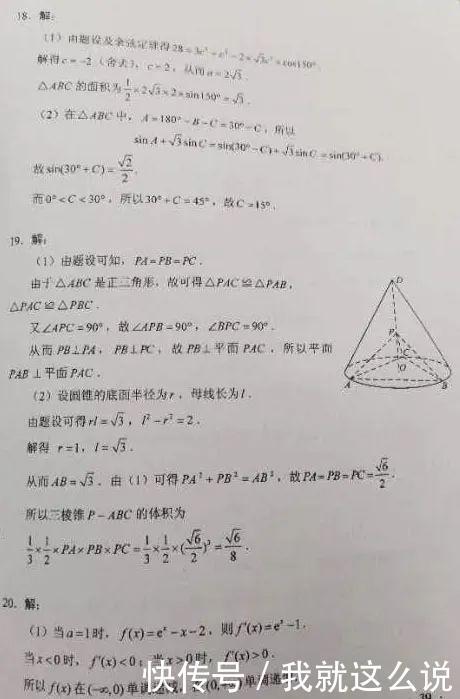 18. 解:
(1) 由题设及余弦定理得28=3c²+c²-2×√3c²×cos150°.
解得c=-2 (舍去), c=2, 从而a=2√3.
△ABC的面积为1/2×2√3×2×sin150°=√3.
(2) 在△ABC中, A=180°-B-C=30°-C, 所以
sin A+√3 sin C=sin(30°-C)+√3 sin C=sin(30°+C).
故sin(30°+C)=√2/2.
而0°<C<30°, 所以30°+C=45°, 故C=15°.
19. 解:
(1) 由题设可知, PA=PB=PC.
由于△ABC是正三角形, 故可得△PAC≌△PAB,
△PAC≌△PBC.
又∠APC=90°, 故∠APB=90°, ∠BPC=90°.
从而PB⊥PA, PB⊥PC, 故PB⊥平面PAC, 所以平面
PAB⊥平面PAC.
D
P
C
O
A
B
(2) 设圆锥的底面半径为r, 母线长为l.
由题设可得rl=√3, l²-r²=2.
解得 r=1, l=√3.
从而AB=√3. 由(1)可得PA²+PB²=AB², 故PA=PB=PC=√6/2.
所以三棱锥P-ABC的体积为
1/3×1/2×PA×PB×PC=1/3×1/2×(√6/2)³=√6/8.
20. 解:
(1) 当a=1时, f(x)=eˣ-x-2, 则f′(x)=eˣ-1.
当x<0时, f′(x)<0; 当x>0时, f′(x)>0.
所以f(x)在(-∞,0)单调
快传号/我就这么说